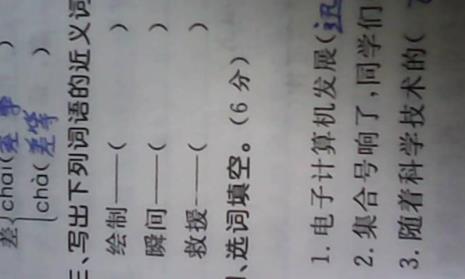 差 chāi(差事 )
chà(差等 )
三、写出下列词语的近义词
绘制——( )
瞬间——( )
救援——( )
、选词填空。(6分)
1.电子计算机发展(迅
2.集合号响了,同学们
3.随着科学技术的(